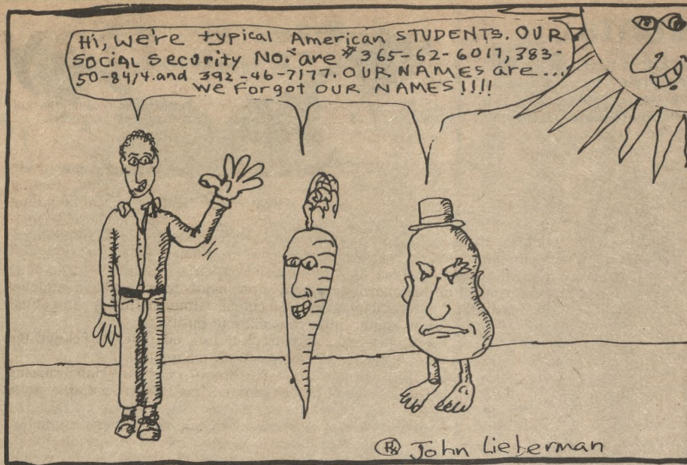 Hi, we're typical American STUDENTS. OUR
SOCIAL Security No.s are # 365-62-6017, 383-
50-8414.and 392-46-7177. OUR NAMES are ...
We Forgot OUR NAMES!!!!
John Lieberman